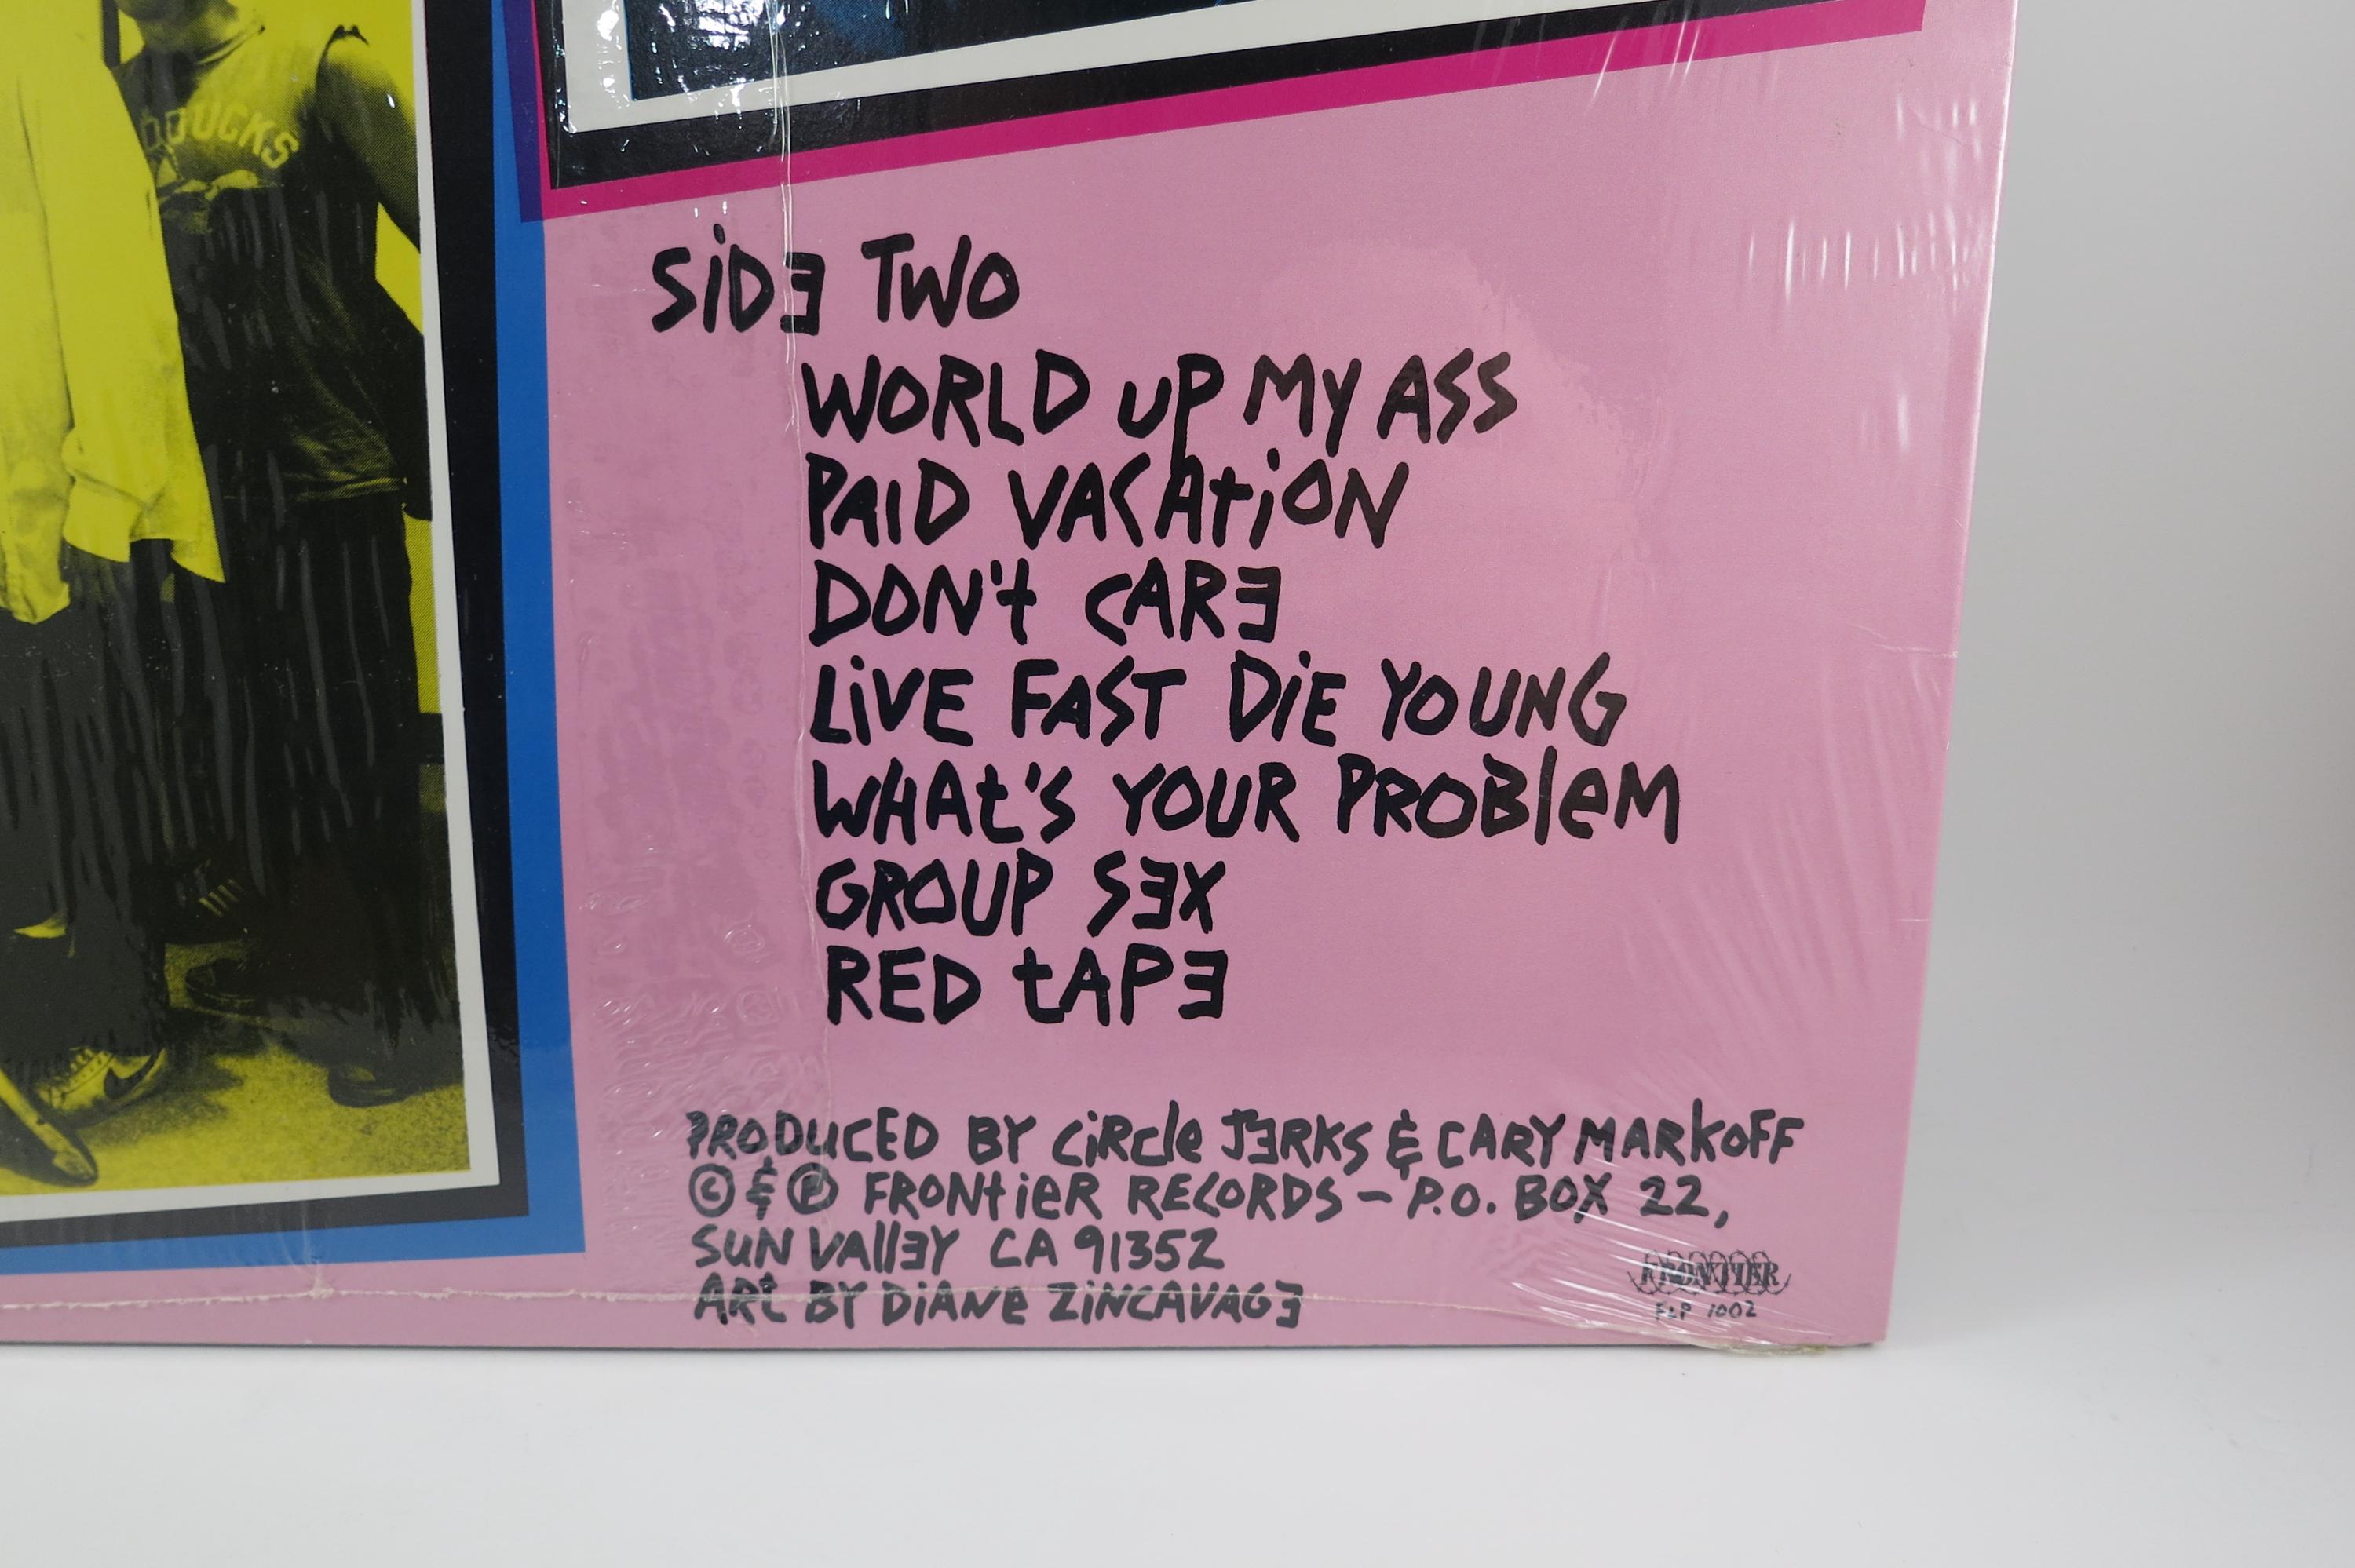 DUCKS
SiDE TWO
WORLD UP MY ASS
PAID VACAtiON
DON't CARE
LiVE FAST DiE YOUNG
WHAt'S YOUR PROBleM
GROUP SEX
RED tAPE
PRODUCED BY CiRcle JERKS & CARY MARKOFF
© & ℗ FRONtieR RECORDS – P.O. BOX 22,
SUN VAllEY CA 91352
ARt BY DiANe ZiNCAVAGE
FRONTIER
FLP 1002